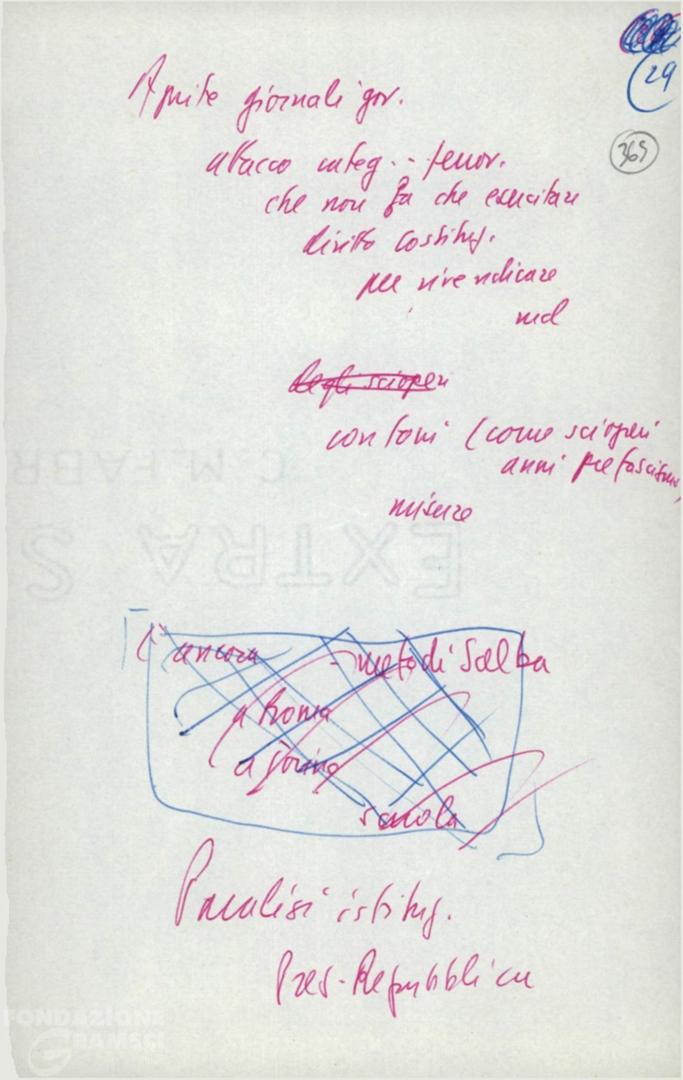 29
365
Aprite giornali gov.
attacco categ. ferrov.
che non fa che esercitare
diritto costituz.
per rivendicare
degli scioperi
con toni (come scioperi
anni prefascismo,
misure
ancora - metodi Scelba
a Roma
a Torino
scuola
Paralisi istituz.
Pres. Repubblica
EXTRA S
C.M. FABR
FONDAZIONE
GRAMSCI